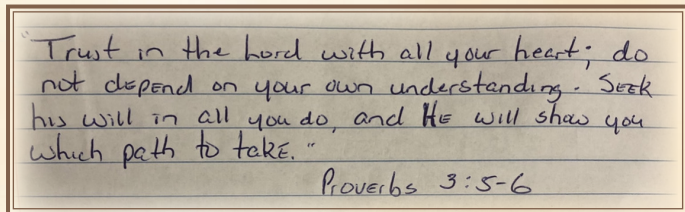 "Trust in the Lord with all your heart; do
not depend on your own understanding. Seek
his will in all you do, and He will show you
which path to take."
Proverbs 3:5-6